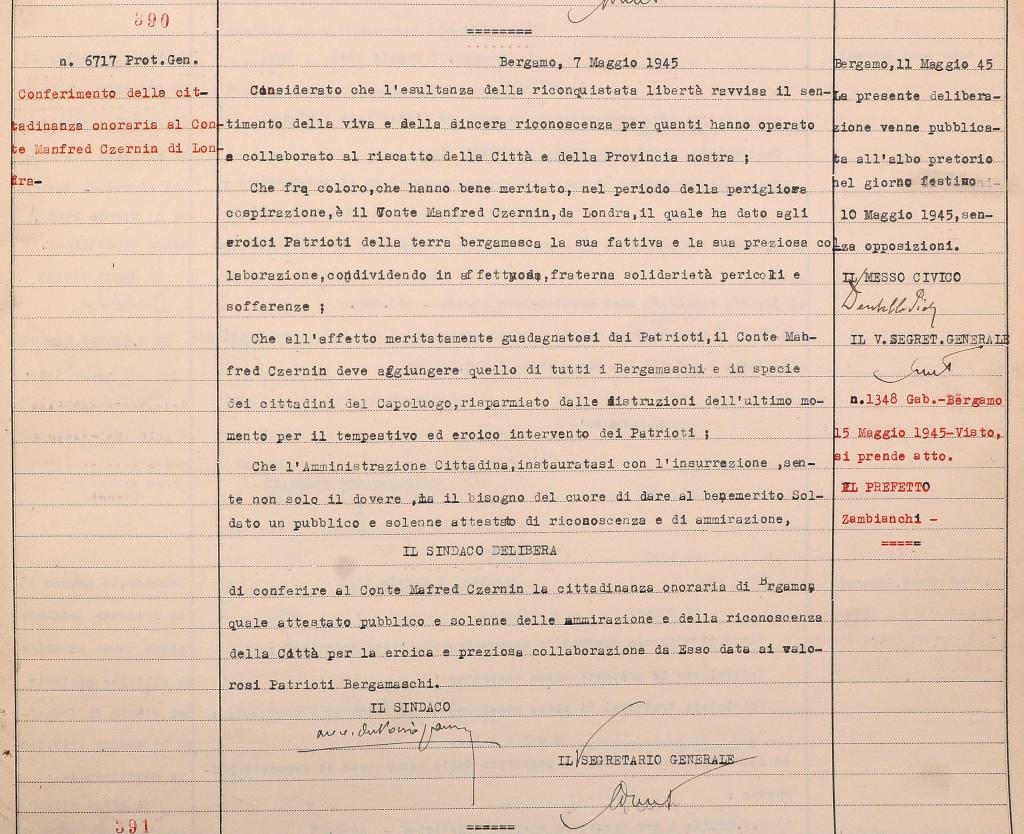 390
n. 6717 Prot.Gen.
Conferimento della cit-
tadinanza onoraria al Con-
te Manfred Czernin di Lon-
fra-
========
Bergamo, 7 Maggio 1945
Considerato che l'esultanza della riconquistata libertà ravvisa il sen-
timento della viva e della sincera riconoscenza per quanti hanno operato
e collaborato al riscatto della Città e della Provincia nostra ;
Che fra coloro,che hanno bene meritato, nel periodo della perigliosa
cospirazione,è il Conte Manfred Czernin,da Londra,il quale ha dato agli
eroici Patrioti della terra bergamasca la sua fattiva e la sua preziosa col
laborazione,condividendo in affettuosa,fraterna solidarietà pericoli e
sofferenze ;
Che all'affetto meritatamente guadagnatosi dai Patrioti,il Conte Man-
fred Czernin deve aggiungere quello di tutti i Bergamaschi e in specie
dei cittadini del Capoluogo,risparmiato dalle distruzioni dell'ultimo mo-
mento per il tempestivo ed eroico intervento dei Patrioti ;
Che l'Amministrazione Cittadina,instauratasi con l'insurrezione ,sen-
te non solo il dovere ,ma il bisogno del cuore di dare al benemerito Sol-
dato un pubblico e solenne attestato di riconoscenza e di ammirazione,
IL SINDACO DELIBERA
di conferire al Conte Mafred Czernin la cittadinanza onoraria di Brgamo,
quale attestato pubblico e solenne delle ammirazione e della riconoscenza
della Città per la eroica e preziosa collaborazione da Esso data ai valo-
rosi Patrioti Bergamaschi.
IL SINDACO
IL SEGRETARIO GENERALE
======
Bergamo,11 Maggio 45
La presente delibera-
zione venne pubblica-
ta all'albo pretorio
nel giorno festivo
10 Maggio 1945,sen-
za opposizioni.
IL MESSO CIVICO
IL V.SEGRET.GENERALE
n.1348 Gab.-Bergamo
15 Maggio 1945-Visto,
si prende atto.
IL PREFETTO
Zambianchi -
=====
391